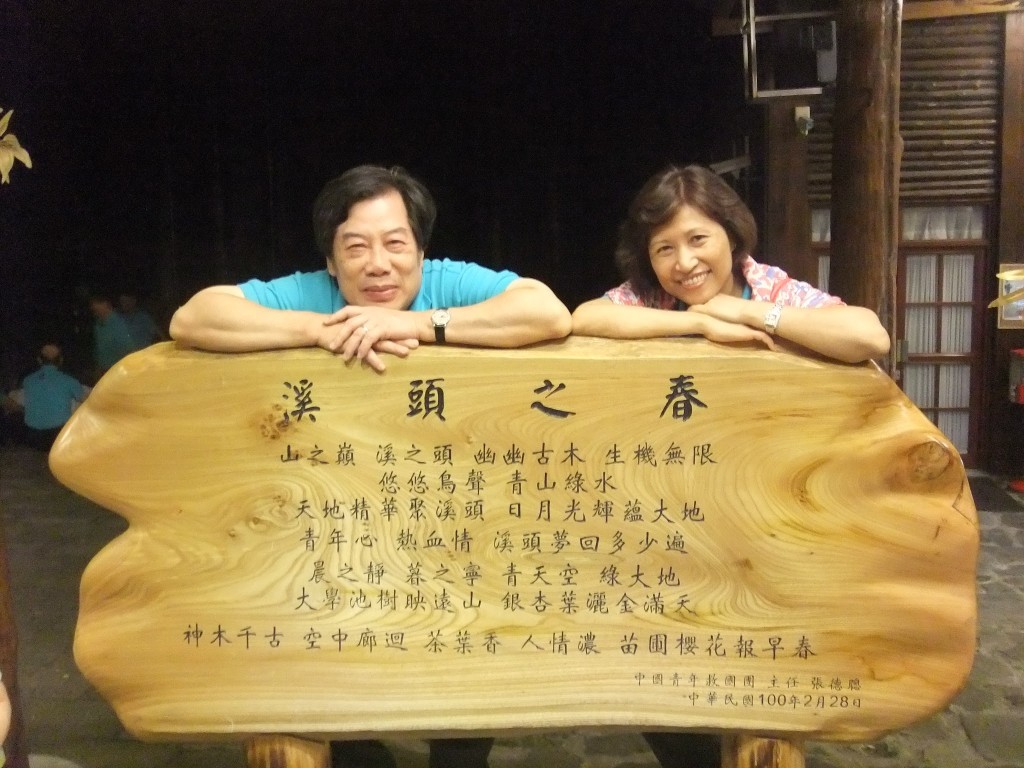 溪頭之春
山之巔 溪之頭 幽幽古木 生機無限
悠悠鳥聲 青山綠水
天地精華聚溪頭 日月光輝蘊大地
青年心 熱血情 溪頭夢回多少遍
晨之靜 暮之寧 青天空 綠大地
大學池樹映遠山 銀杏葉灑金滿天
神木千古 空中廊迴 茶葉香 人情濃 苗圃櫻花報早春
中國青年救國團 主任 張德聰
中華民國100年2月28日